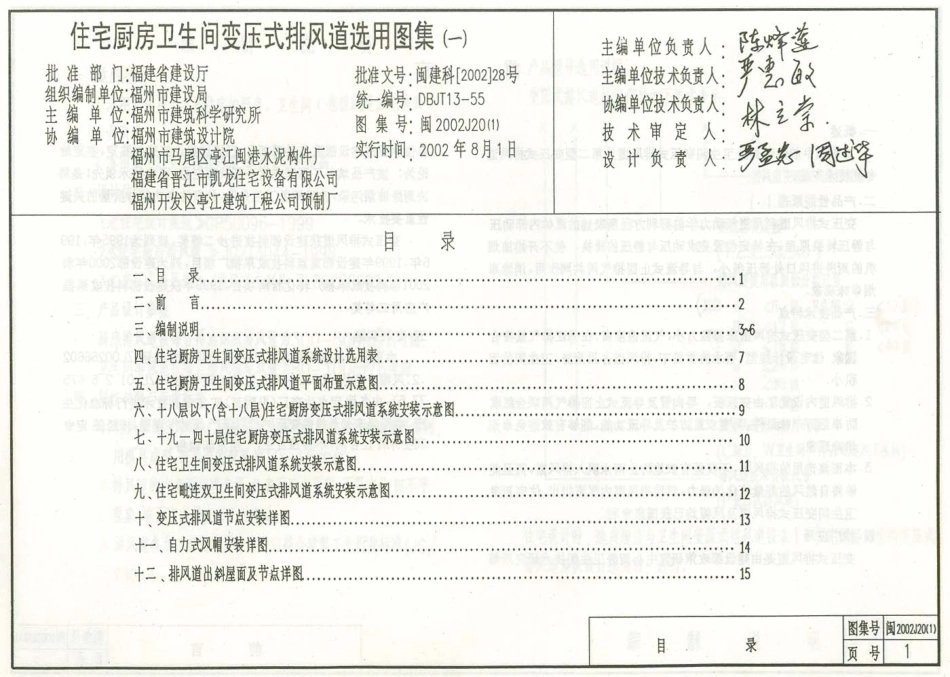 住宅厨房卫生间变压式排风道选用图集(一)
批准部门:福建省建设厅
组织编制单位:福州市建设局
主编单位:福州市建筑科学研究所
协编单位:福州市建筑设计院
福州市马尾区亭江闽港水泥构件厂
福建省晋江市凯龙住宅设备有限公司
福州开发区亭江建筑工程公司预制厂
批准文号:闽建科[2002]28号
统一编号:DBJT13-55
图集号:闽2002J20(1)
实行时间:2002年8月1日
主编单位负责人:
主编单位技术负责人:
协编单位负责人:
技术审定人: 林立棠
设计负责人:
目录
一.目录 1
二.前言 2
三.编制说明 3-6
四.住宅厨房卫生间变压式排风道系统设计选用表 7
五.住宅厨房卫生间变压式排风道平面布置示意图 8
六.十八层以下(含十八层)住宅厨房变压式排风道系统安装示意图 9
七.十九—四十层住宅厨房变压式排风道系统安装示意图 10
八.住宅卫生间变压式排风道系统安装示意图 11
九.住宅毗连双卫生间变压式排风道系统安装示意图 12
十.变压式排风道节点安装详图 13
十一.自力式风帽安装详图 14
十二.排风道出斜屋面及节点详图 15
目录
图集号 闽2002J20(1)
页号 1